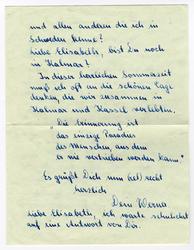 und allen anderen die ich in
Schweden kenne?
Liebe Elisabeth, bist Du noch
in Kalmar?
In dieser herrlichen Sommerzeit
muß ich oft an die schönen Tage
denken, die wir zusammen in
Kalmar und Kassel erlebten.
"Die Erinnerung ist
das einzige Paradies
des Menschen, aus dem
er nie vertrieben werden kann."
Es grüßt Dich nun recht
herzlich
Dein Werner
Liebe Elisabeth, ich warte sehnlichst
auf eine Antwort von Dir.